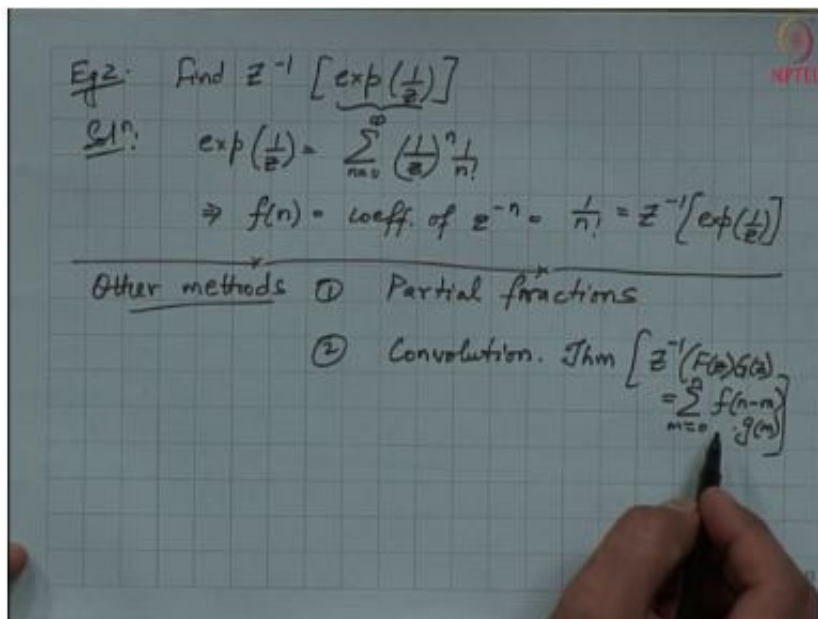 NPTEL
Eg 2. Find Z⁻¹ [exp(1/z)]
Solⁿ: exp(1/z) = ∑_{n=0}^{∞} (1/z)ⁿ 1/n!
⇒ f(n) = coeff. of z⁻ⁿ = 1/n! = Z⁻¹[exp(1/z)]
Other methods ① Partial fractions
② Convolution. Thm [Z⁻¹(F(z)G(z)
= ∑_{m=0}^{n} f(n-m)
·g(m)]